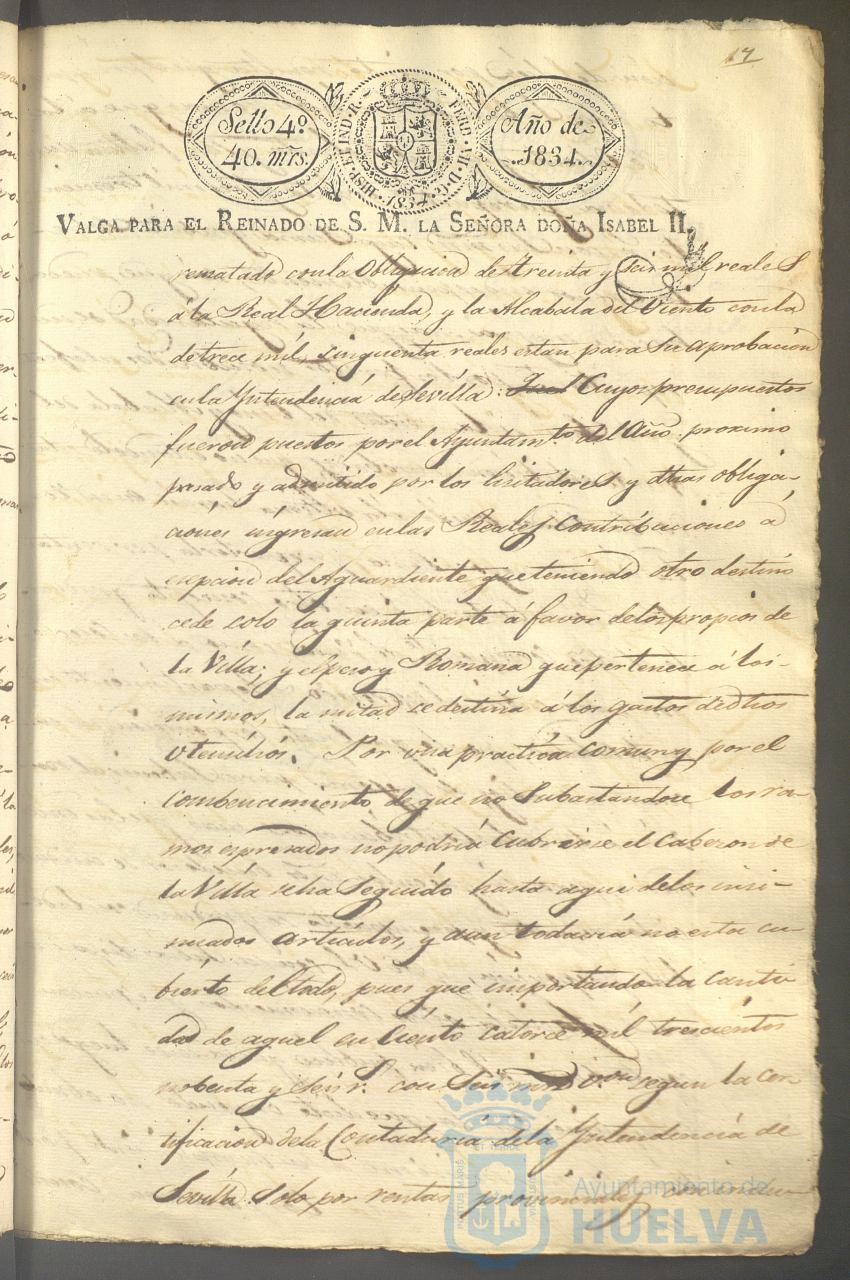 17
Sello 4º
40. mrs.
HISP. ET IND. R. FERD. VII. D. G.
1834
Año de
1834.
VALGA PARA EL REINADO DE S. M. LA SEÑORA DOÑA ISABEL II.
rematado con la obligacion de treinta y seis mil reales
á la Real Hacienda, y la Alcabala del Viento con la
de trece mil singuenta reales estan para su aprobacion
en la Yntendencia de Sevilla: Cuyos presupuestos
fueron puestos por el Ayuntamto. del Año proximo
pasado y admitido por los lisitadores y dthas obliga-
ciónes ingresan en las Reales Contribaciones á
espcion del Aguardiente que teniendo otro destino
cede solo la quinta parte á favor delos propios de
la Villa; y el peso y Romana que pertenece á los
mismos, la mitad se destina á los gastos de dhos
Utensilios. Por una practica comun y por el
combencimiento de que no Subastandose los ra-
mos espresados no podria Cubrirse el Cabezon de
la Villa se ha Seguido hasta aqui delos insi-
nuados articulos, y aun todavia no esta cu-
bierto del todo, pues que importando la canti-
dad de aquel en Ciento catorce mil trescientos
nobenta y seis r. con Seis mrs von segun la cer
tificacion dela Contaduria dela Yntendencia de
Sevilla solo por rentas provinciales sin inclu-
Ayuntamiento de
HUELVA